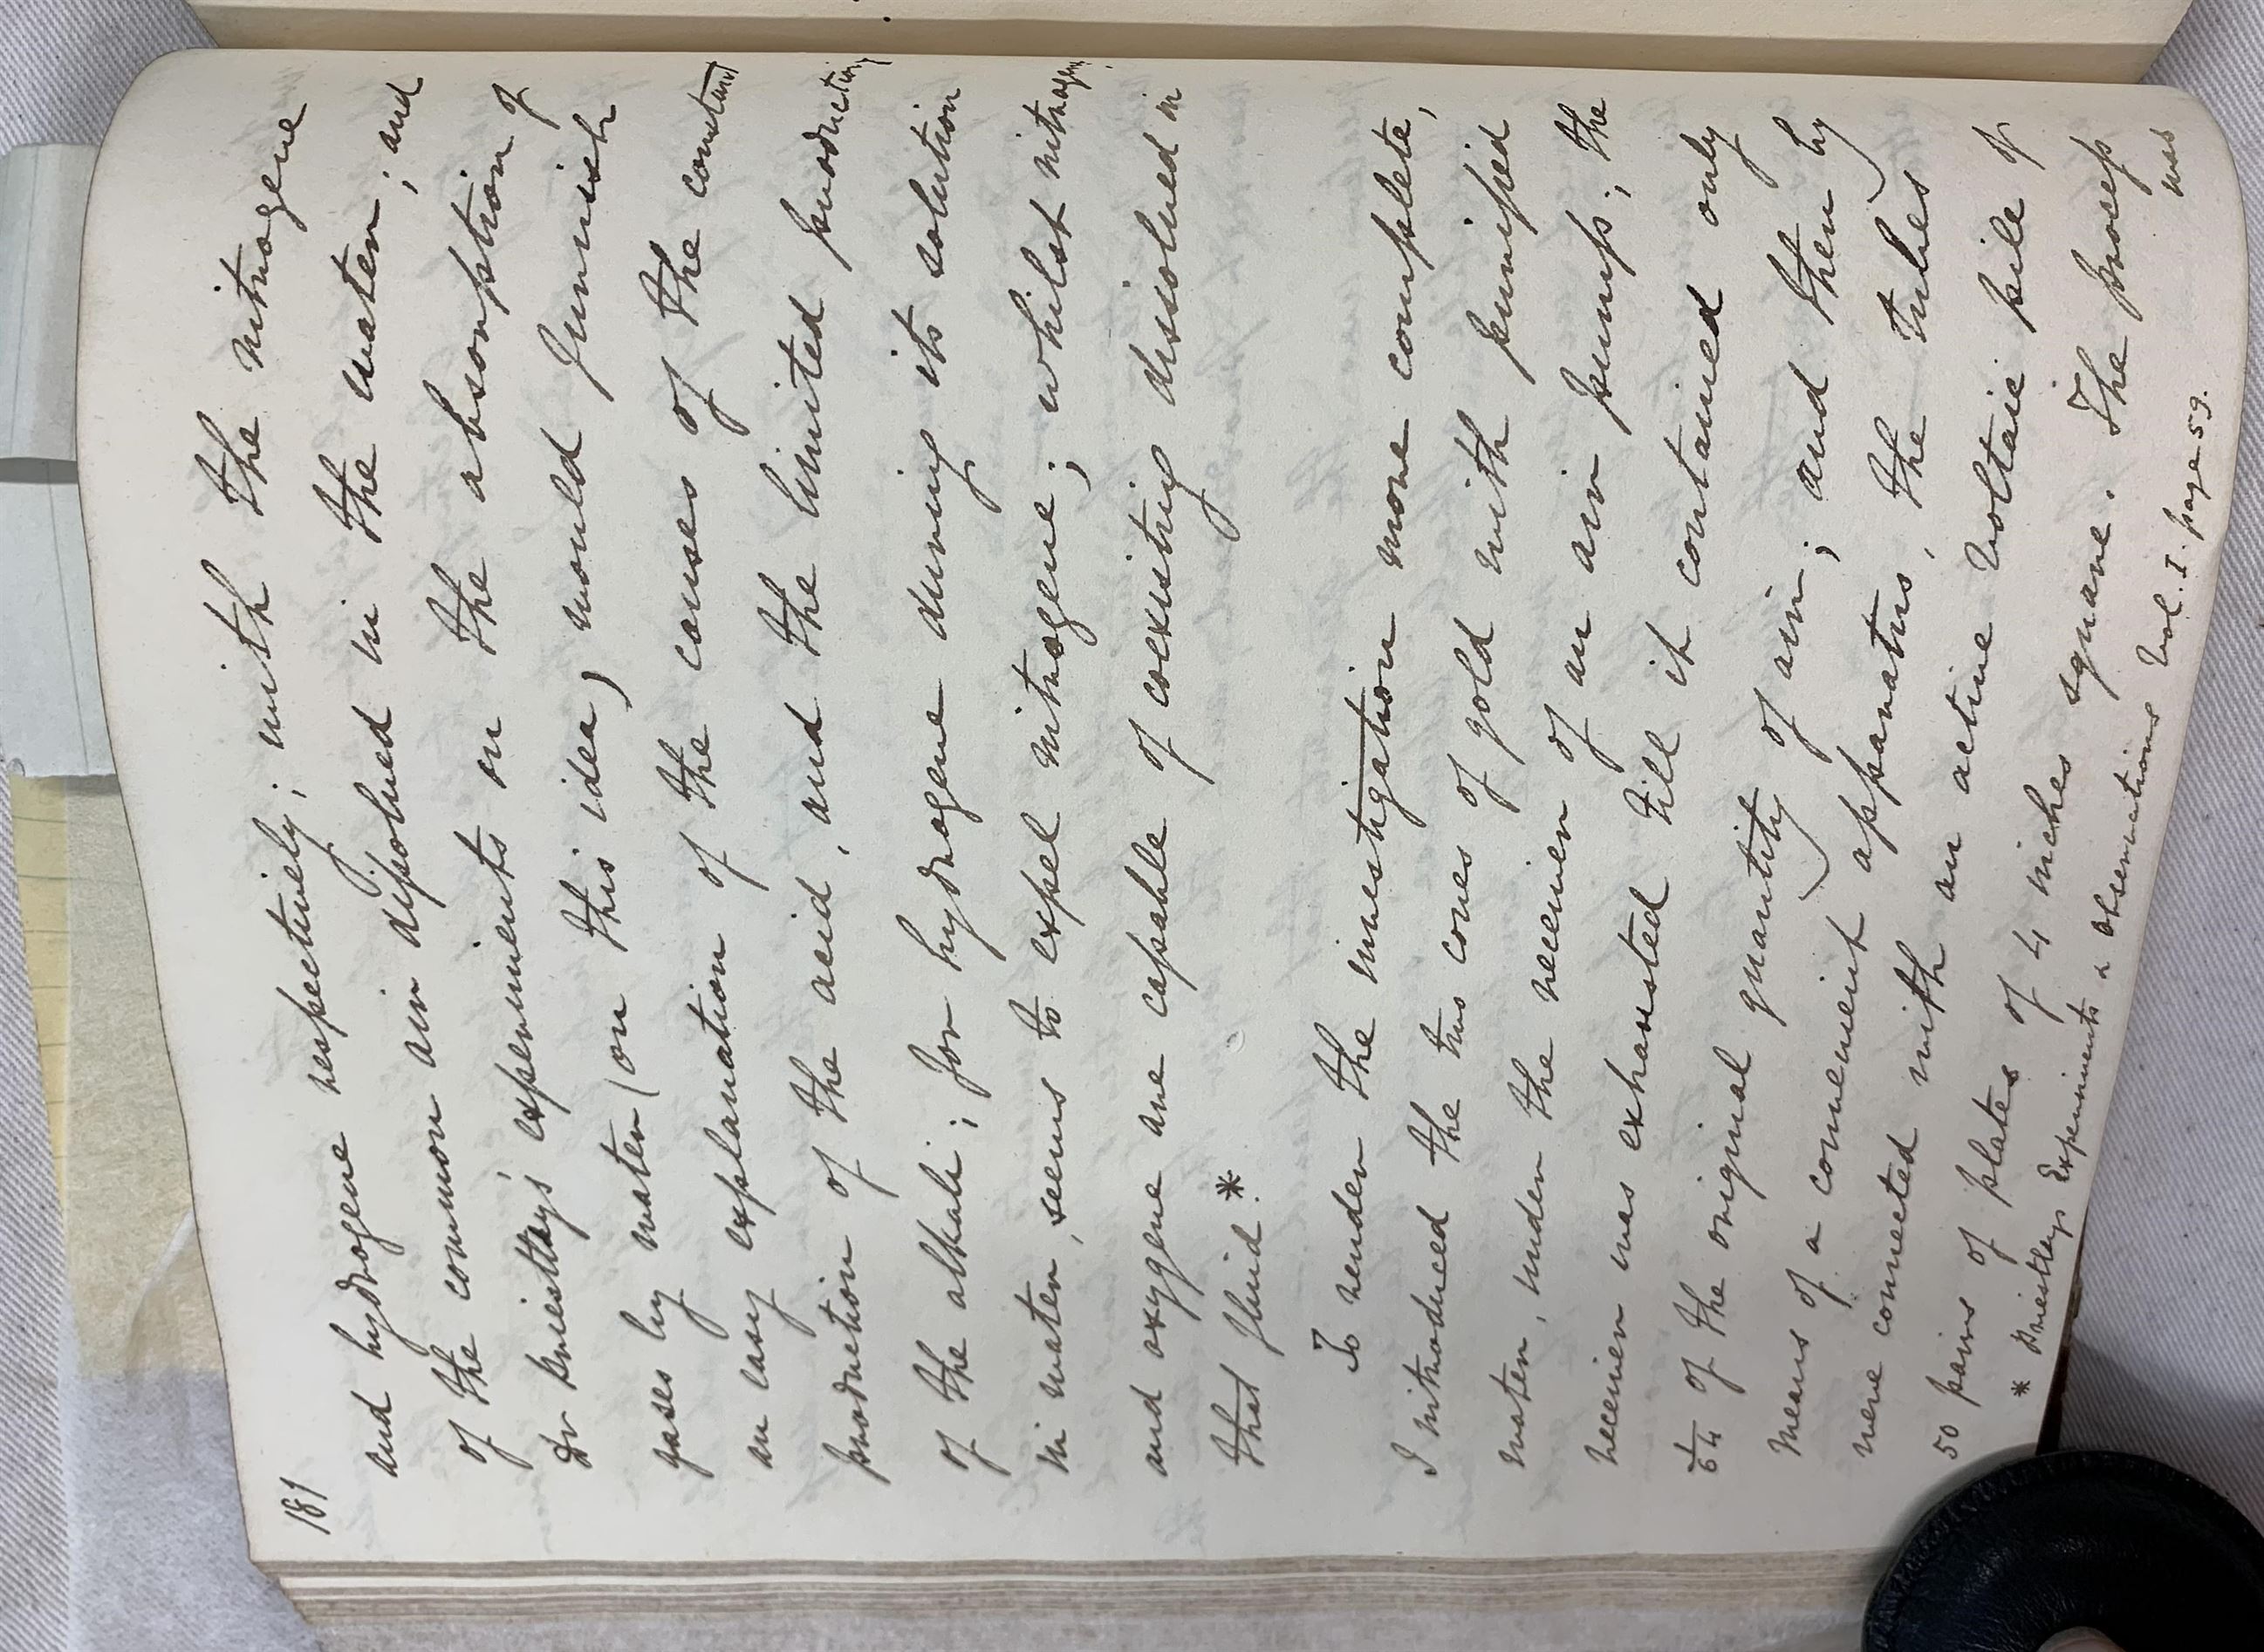 181
and hydrogene respectively; with the nitrogene
of the common air dissolved in the water; and
Dr Priestley's experiments on the absorption of
gases by water (on this idea) would furnish
an easy explanation of the causes of the constant
production of the acid, and the limited production
of the alkali; for hydrogene during its solution
in water, seems to expel nitrogene; whilst nitrogene
and oxygene are capable of coexisting dissolved in
that fluid. *
To render the investigation more complete,
I introduced the two cones of gold with purified
water, under the receiver of an air pump; the
receiver was exhausted till it contained only
1/64 of the original quantity of air; and then by
means of a convenient apparatus, the tubes
were connected with an active Voltaic pile of
50 pairs of plates of 4 inches square. The process
was
* Priestleys Experiments & observations Vol. I. page 59.